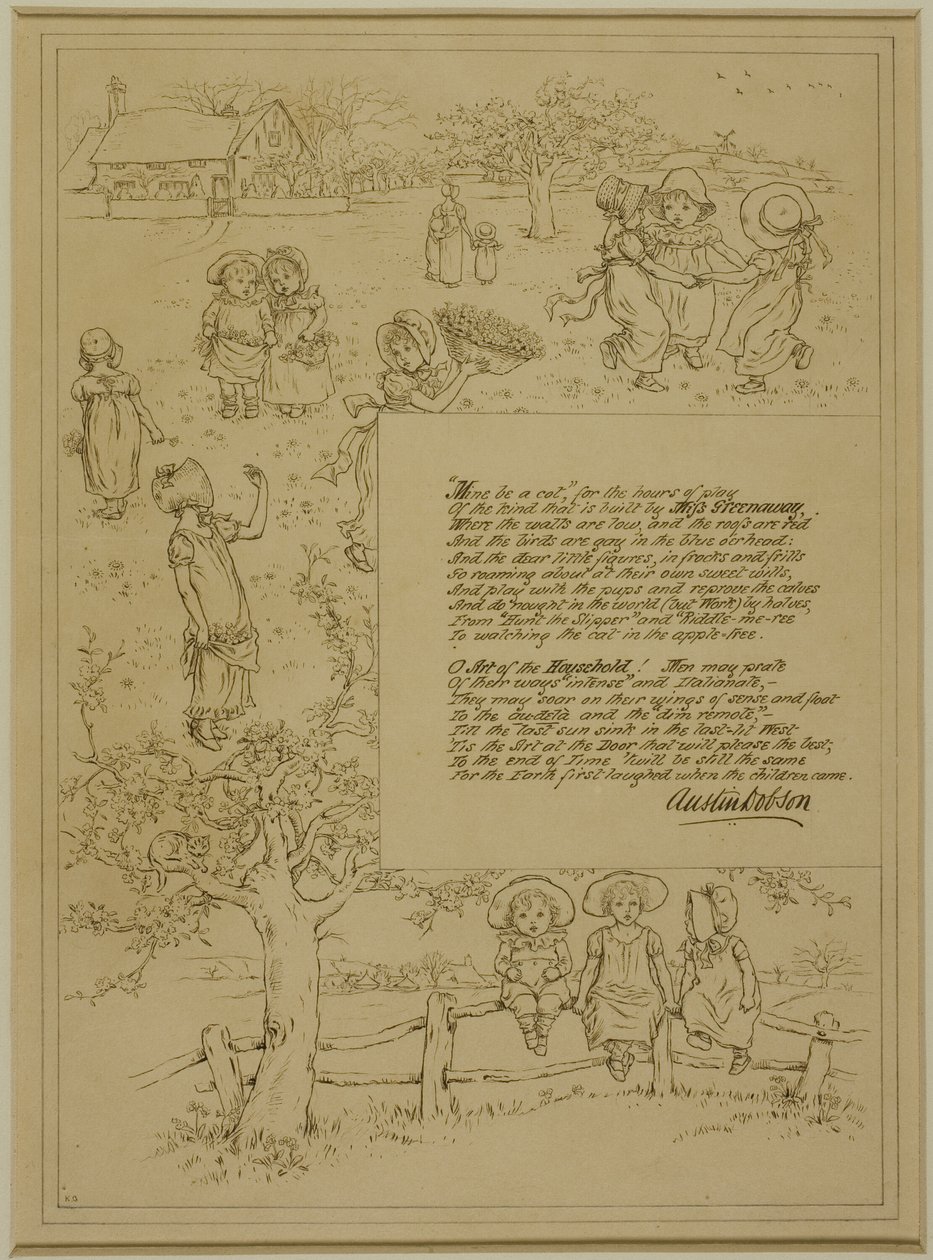 "Mine be a cot," for the hours of play
Of the kind that is built by Miss Greenaway,
Where the walls are low, and the roofs are red
And the birds are gay in the blue o'erhead:
And the dear little figures, in frocks and frills
Go roaming about at their own sweet wills,
And play with the pups and reprove the calves
And do nought in the world (but Work) by halves,
From "Hunt the Slipper" and "Riddle-me-ree"
To watching the cat in the apple-tree.
O Art of the Household! Men may prate
Of their ways "intense" and Italianate,–
They may soar on their wings of sense and float
To the au-delà and the "dim remote,"–
Till the last sun sink in the last-lit West
'Tis the Art at the Door that will please the best;
To the end of Time 'twill be still the same
For the Earth first laughed when the children came.
Austin Dobson
K.G